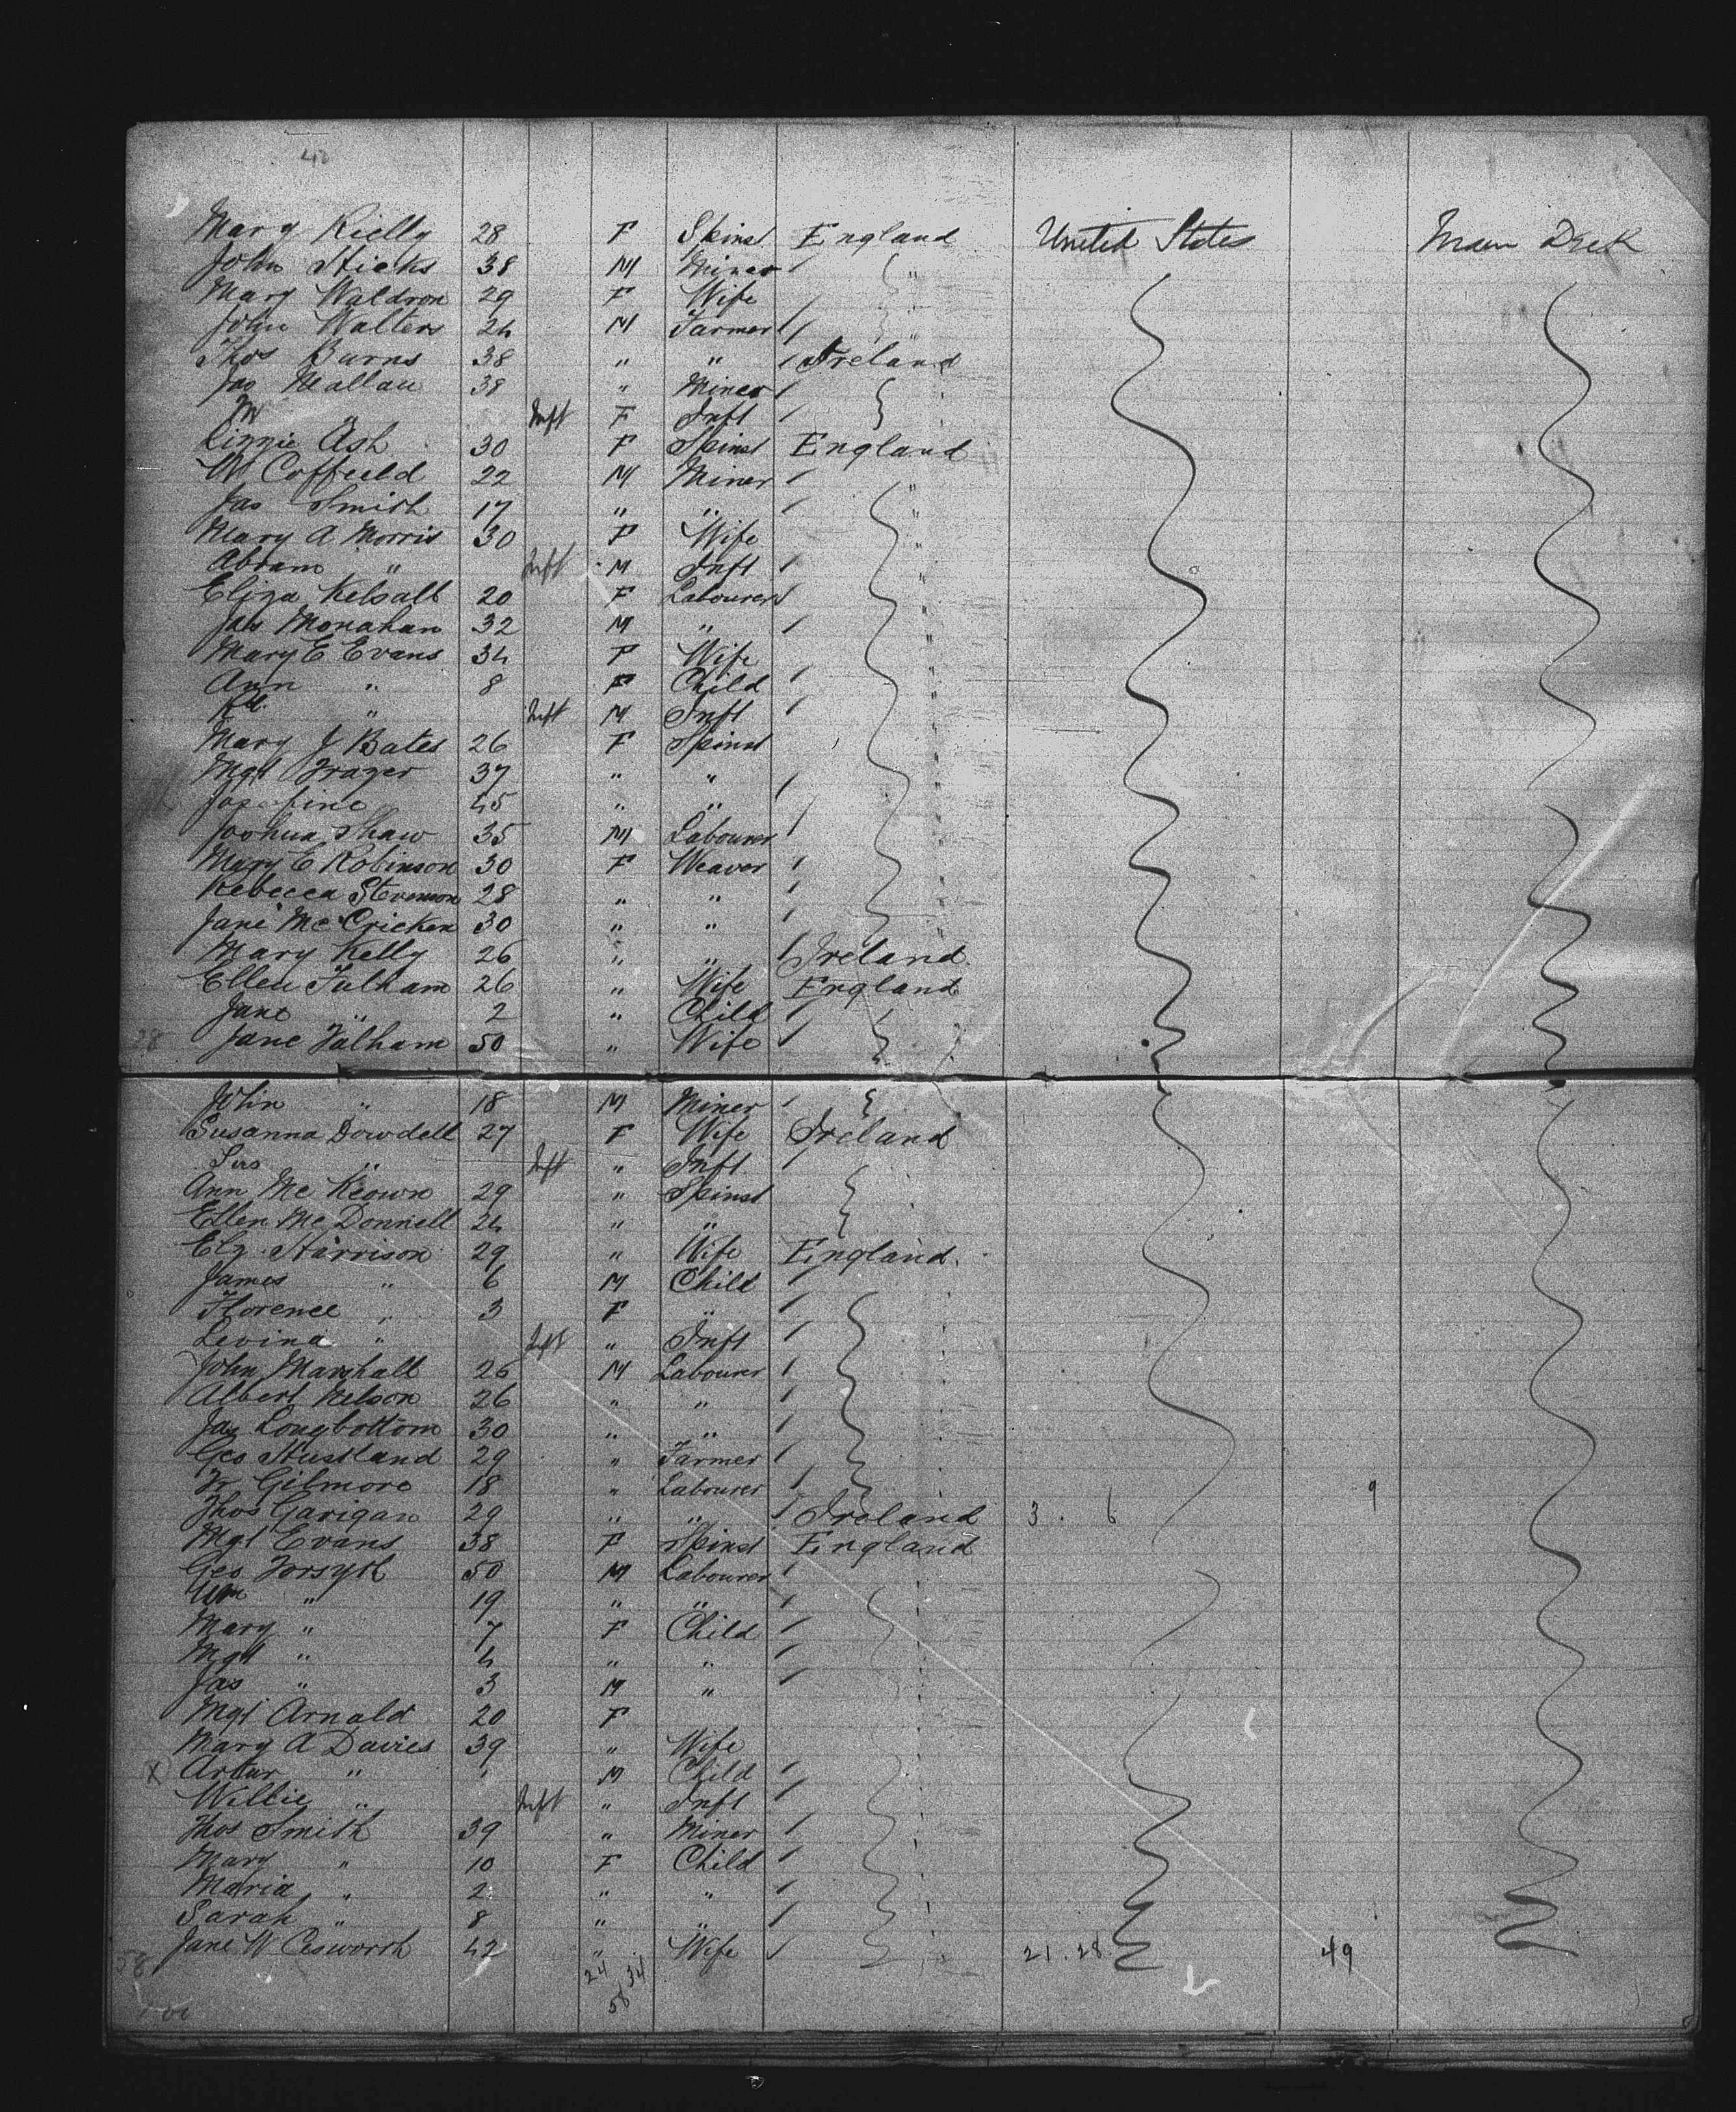 40
Mary Rielly 28 F Spinst England United States Main Deck
John Hicks 38 M Miner "
Mary Waldron 29 F Wife
John Walters 24 M Farmer
Thos Burns 38 " " Ireland
Jas Mallau 38 " Miner
M " Inft F Inft
Lizzie Ash 30 F Spinst England
W Coffield 22 M Miner "
Jas Smith 17 " " "
Mary A Morris 30 F Wife "
Abram " Inft M Inft "
Eliza Kelsall 20 F Labourer "
Jas Monahan 32 M " "
Mary E Evans 34 F Wife
Ann " 8 F Child
Rd " Inft M Inft
Mary J Bates 26 F Spinst
Mgt Frazer 37 " "
Josefine 45 " "
Joshua Shaw 35 M Labourer
Mary E Robinson 30 F Weaver
Rebecca Stevenson 28 " "
Jane McCricken 30 " "
Mary Kelly 26 " " Ireland
Ellen Fulham 26 " Wife England
Jane " 2 " Child
28 Jane Fulham 50 " Wife
John " 18 M Miner
Susanna Dowdell 27 F Wife Ireland
Sus " Inft " Inft
Ann McKeown 29 " Spinst
Ellen McDonnell 24 " "
Elz Harrison 29 " Wife England
James " 6 M Child
Florence " 3 F "
Levina " Inft " Inft
John Marshall 26 M Labourer
Albert Nelson 26 " "
Jas Longbottom 30 " "
Geo Hustland 29 " Farmer
Fr Gilmore 18 " Labourer 9
Thos Garigan 29 " " Ireland 3 . 6
Mgt Evans 38 F Spinst England
Geo Forsyth 50 M Labourer
Wm " 19 " "
Mary " 7 F Child
Mgt " 4 " "
Jas " 3 M "
Mgt Arnald 20 F
Mary A Davies 39 " Wife
X Artur " 1 M Child
Willie " Inft " Inft
Thos Smith 39 " Miner
Mary " 10 F Child
Maria " 2 " "
Sarah " 8 " "
Jane W Cesworth 42 " Wife 21 . 28 49
58 24 34
58